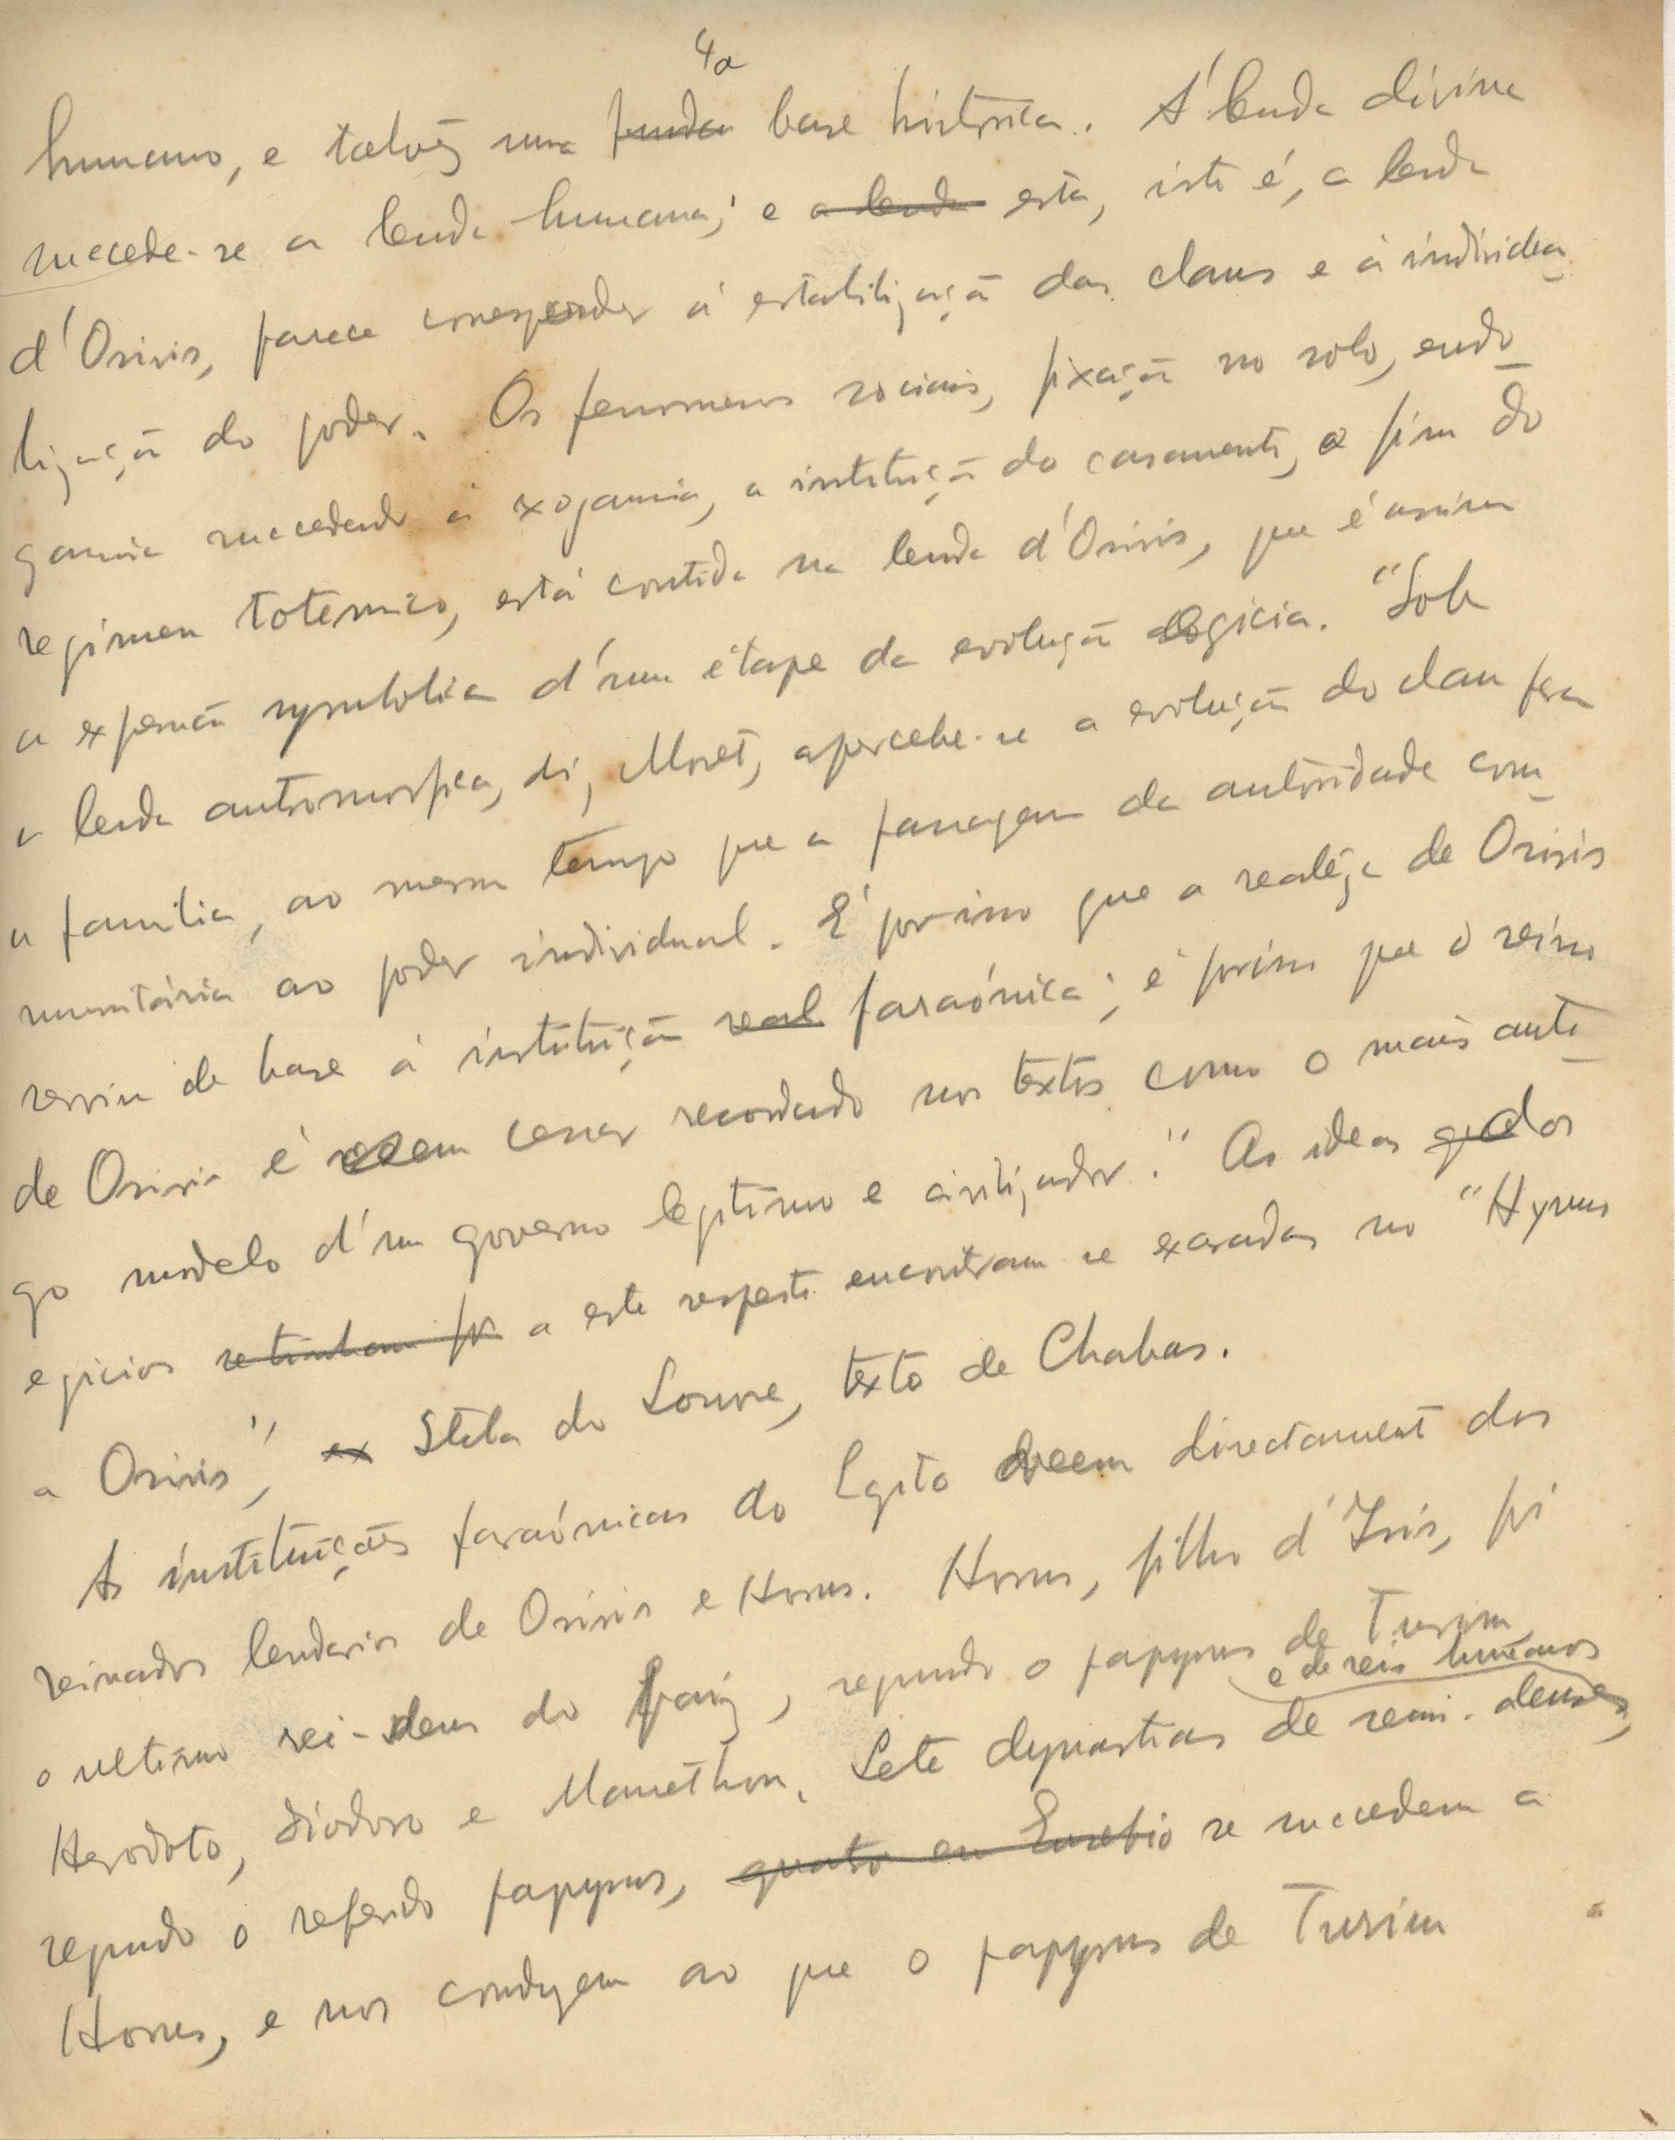 4a
humano, e talvez uma funda base historica. Á lenda divina
succede-se a lenda humana; e a lenda esta, isto é, a lenda
d'Osiris, parece corresponder á estabilização dos clans e á individua_
lização do poder. Os fenomenos sociais, fixação no solo, endo_
gamia succedendo á exogamia, a instituição do casamento, o fim do
regimen totemico, está contida na lenda d'Osiris, que é assim
a expressão symbolica d'uma étape da evolução egicia. "Sob
a lenda antromorfica, diz Moret, apercebe-se a evolução do clan para
a familia, ao mesmo tempo que a passagem da autoridade com_
munitária ao poder individual. É por isso que a realeza de Osiris
serviu de base á instituição real faraónica; é por isso que o reino
de Osiris é sem cessar recordado nos textos como o mais anti_
go modelo d'um governo legitimo e civilizador." As ideas dos
egicios se tinham for a este respeito encontram se exaradas no "Hymno
a Osiris", ex Stela do Louvre, texto de Chabas.
As instituições faraónicas do Egito veem directamente dos
reinados lendarios de Osiris e Horus. Horus, filho d'Isis, foi
o ultimo rei-deus do paiz, segundo o papyrus de Turim,
e de reis humanos
Herodoto, Diodoro e Manethon. Sete dynastias de semi-deuses,
segundo o referido papyrus, quatro em Eusebio se succedem a
Horus, e nos conduzem ao que o papyrus de Turim